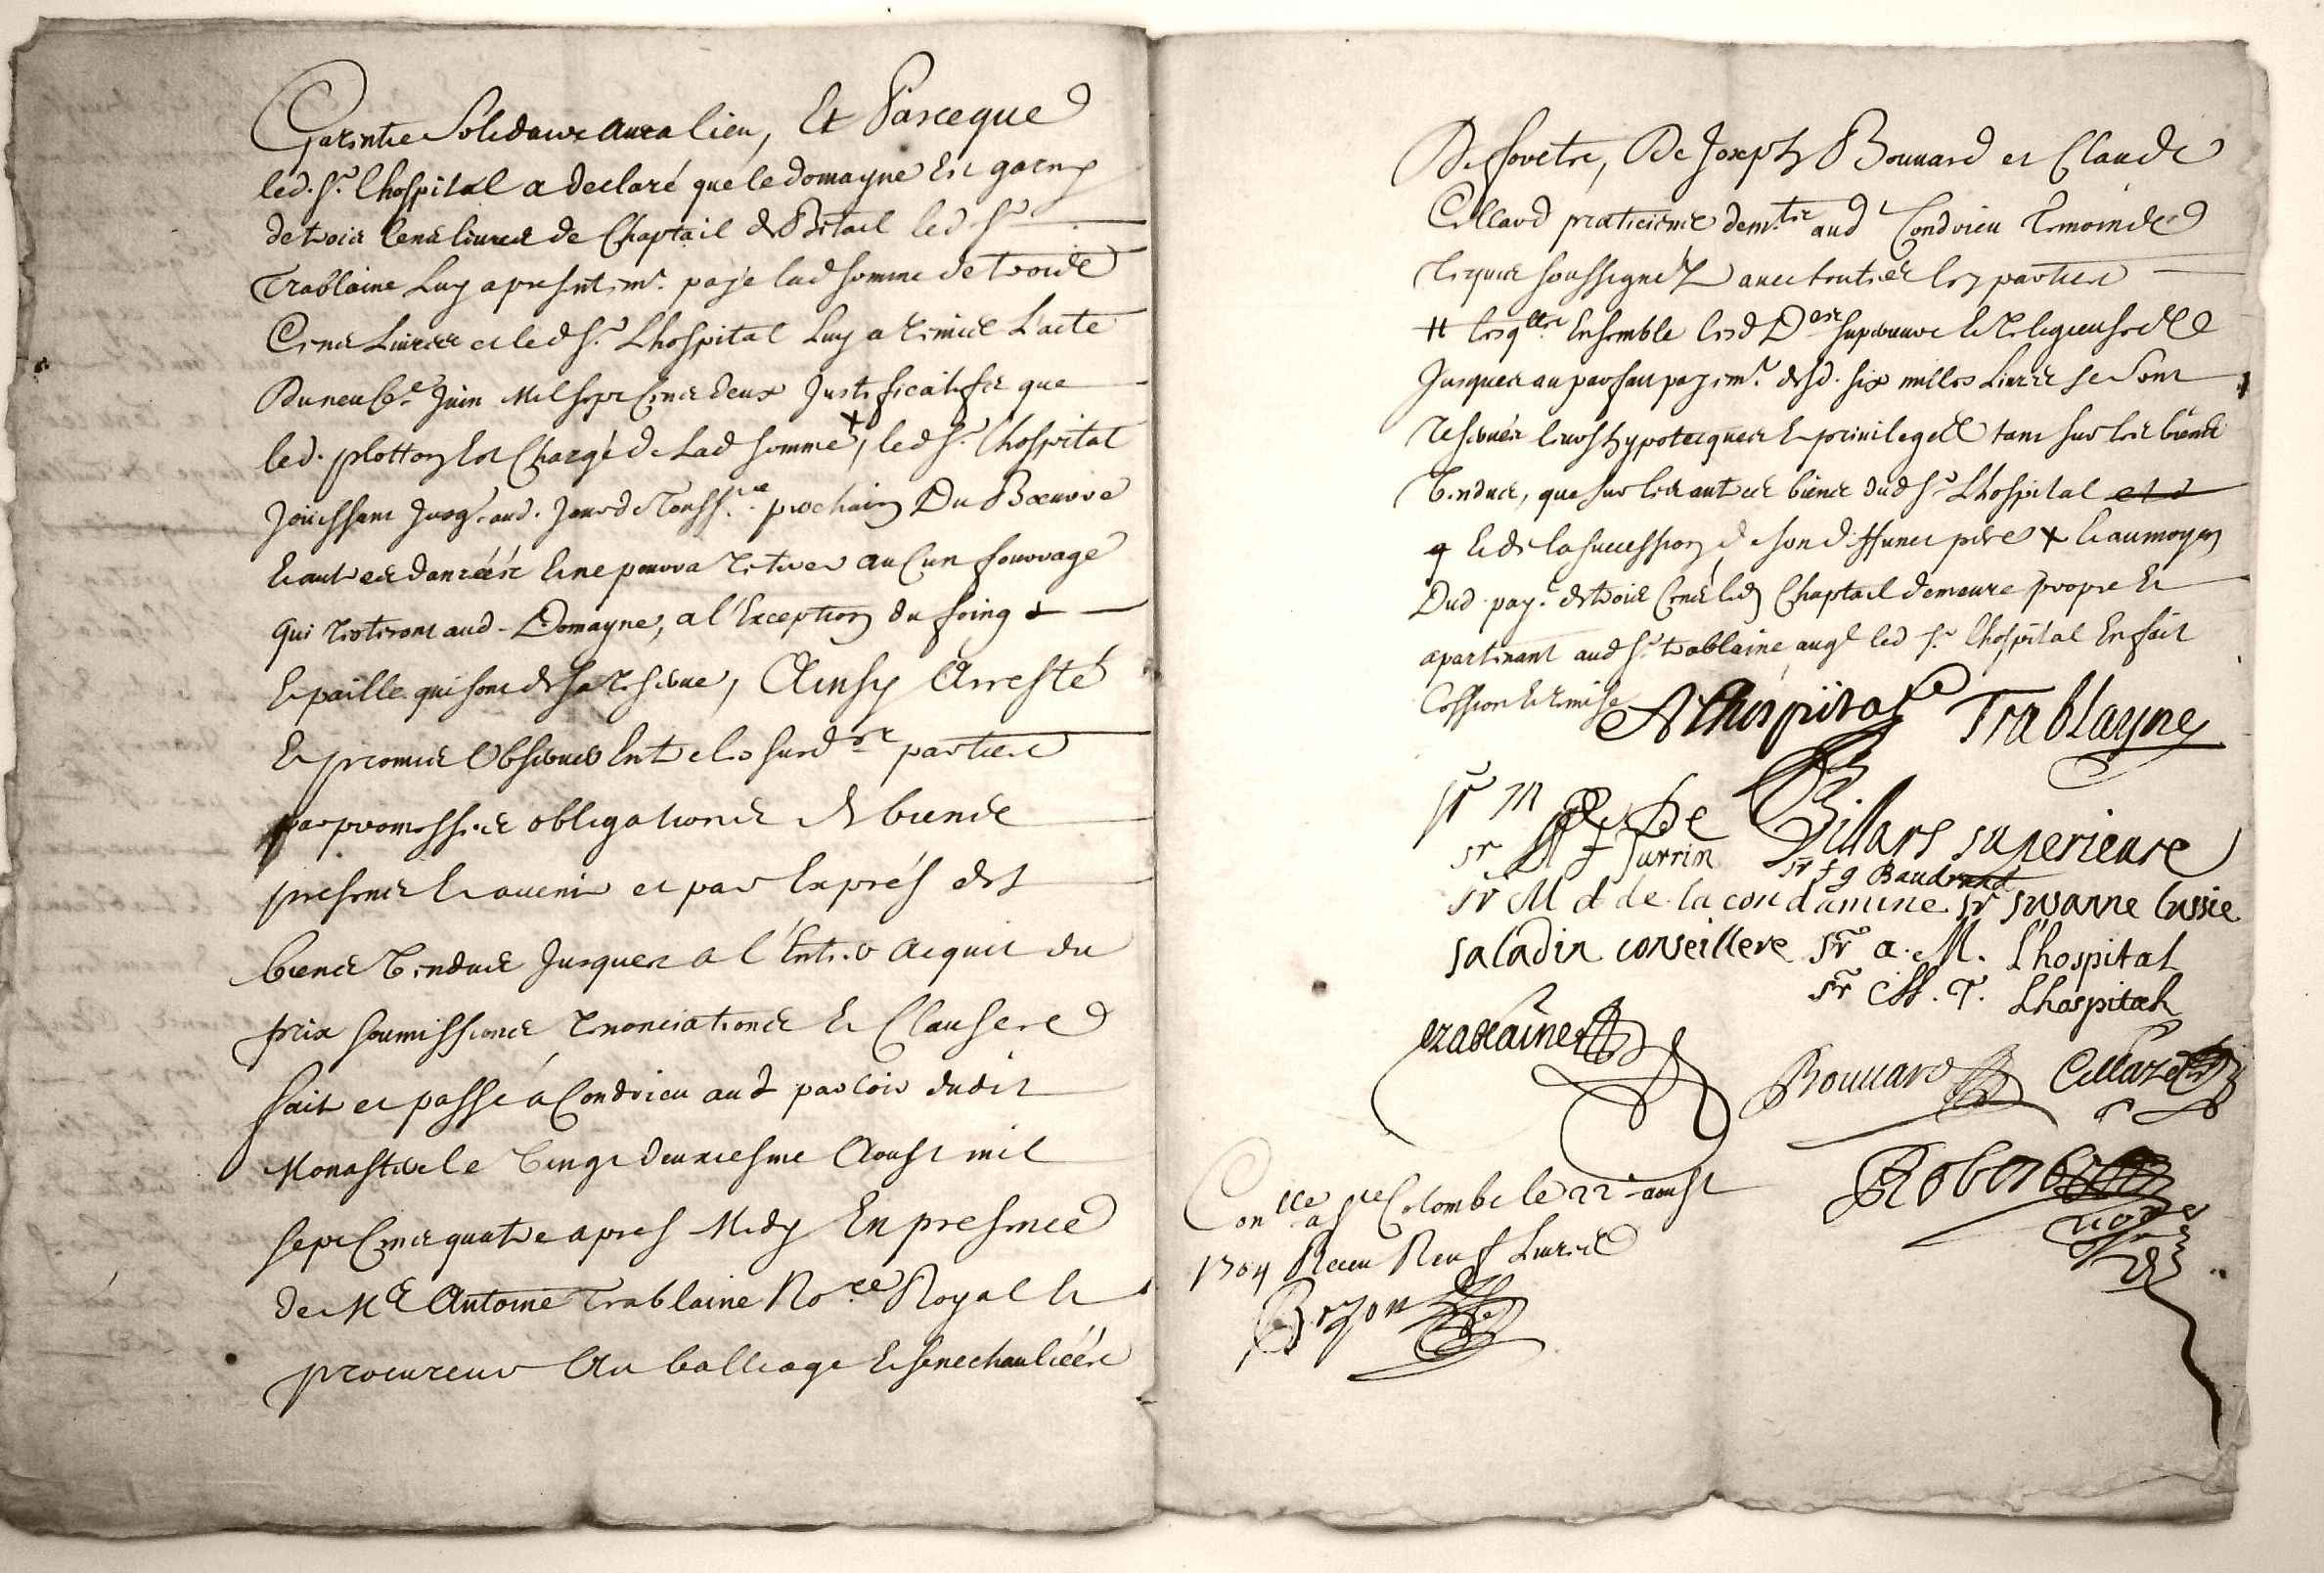 Garentie Solidaire aura lieu, Et Parceque
led. sr. lhospital a declaré que le domayne Est garny
de trois Cens livres de Chaptail de Bétail led sr
Trablaine Luy a presentemt. payé lad somme de trois
Cens Livres et led sr. Lhospital Luy a remis L'acte
Du neufe. Juin Mil sept Cens deux Justificatif que
led. plotton Est Chargé de Lad somme +, led sr. lhospital
Joüissant Jusq. aud. Jour de Touss.re prochain Du Bœurre
Et autres danrées Et ne pourra retirer auCun fourrage
Qui resteront aud. Domayne, a l'Exception du foing
Et paille qui sont de sa reserve, Ainsy Arresté
Et promis Observer Entre les susdes parties
par promesses obligations de biens
presens Et avenir et par Exprés des
biens Vendus Jusques a l'Entier acquit du
prix soumissions renonciations Et Clauses
fait et passé à Condrieu aud parloir dudit
Monastere le Vingt deuxiesme Aoust mil
sept Cens quatre apres Midy En presence
de Me Antoine Trablaine Nore Royal Et
procureur Au balliage Et senechaulcée
De foretz, De Joseph Bouuard et Claude
Cellard praticiens demtz aud Condrieu Temoins
requis soussignez avec toutes les parties
# lesqlles Ensemble lesd Des superieure Et religieuses
Jusques au parfait payemt. desd. six milles Livres se sont
reservées leurs hypotecques Et privileges tant sur les biens
Vendus, que sur les autres biens dud sr Lhospital
Et de la succession de son deffunct pere + Et au moyen
Dud. pay.t de trois Cens led Chaptail demeure propre Et
apartenant aud sr. trablaine auql led sr. lhospital En fait
Cession Et remise
Lhospital Trablayne
sr M De Villars superieure
sr M f Jurrin sr f g Baudrand
sr M d de la condamine sr susanne
saladin conseillere sr a. M. Lhospital
sr M. T. Lhospital
trablaine
Bouuard Cellard
Conlle a ste Colombe le 22e aoust
1704 Receu Neuf Livres
Robert
nore